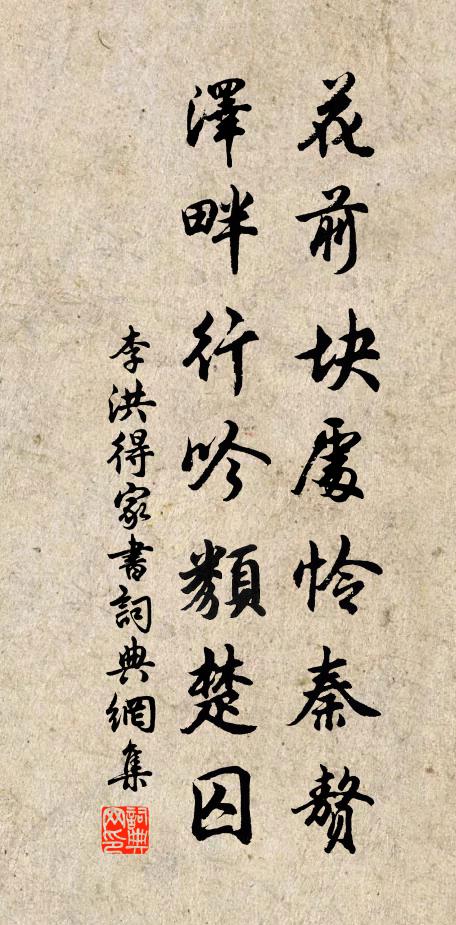 花前块處怜秦贅
澤畔行吟類楚囚
李洪得家書詞典網集
詞典网印